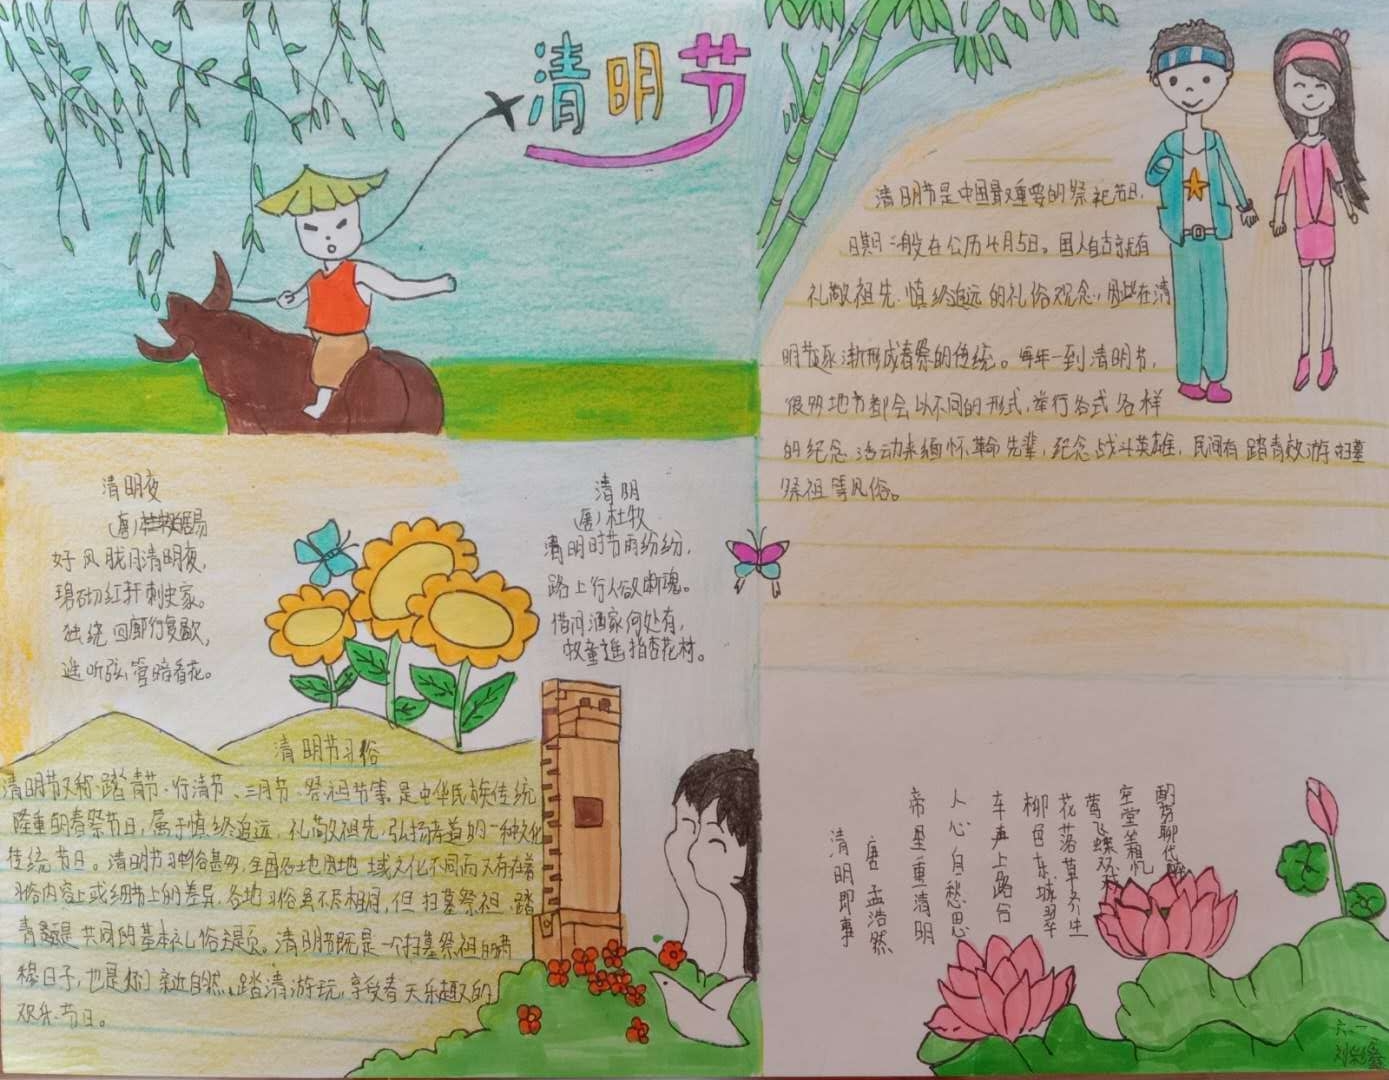 清明节
清明节是中国最重要的祭祀节日,
日期一般在公历4月5日。国人自古就有
礼敬祖先、慎终追远的礼俗观念,因此在清
明节逐渐形成春祭的传统。每年一到清明节,
很多地方都会以不同的形式,举行各式各样
的纪念活动来缅怀革命先辈,纪念战斗英雄,民间有踏青效游扫墓
祭祖等风俗。
清明夜
(唐)居易
好风胧月清明夜,
碧砌红轩刺史家。
独绕回廊行复歇,
遥听弦管暗看花。
清明
(唐)杜牧
清明时节雨纷纷,
路上行人欲断魂。
借问酒家何处有,
牧童遥指杏花村。
清明节习俗
清明节又称踏青节、行清节、三月节、祭祖节等,是中华民族传统
隆重的春祭节日,属于慎终追远、礼敬祖先,弘扬孝道的一种文化
传统节日。清明节习俗甚多,全国各地因地域文化不同而又存在着
习俗内容上或细节上的差异,各地习俗虽不尽相同,但扫墓祭祖、踏
青是共同的基本礼俗主题。清明节既是一个扫墓祭祖的肃
穆日子,也是你们亲近自然、踏清游玩,享受春天乐趣的
欢乐节日。
清明即事
唐 孟浩然
帝里重清明
人心自愁思
车声上路合
柳色东城翠
花落草齐生
莺飞蝶双戏
空堂相忆
酌聊代醉
六.一